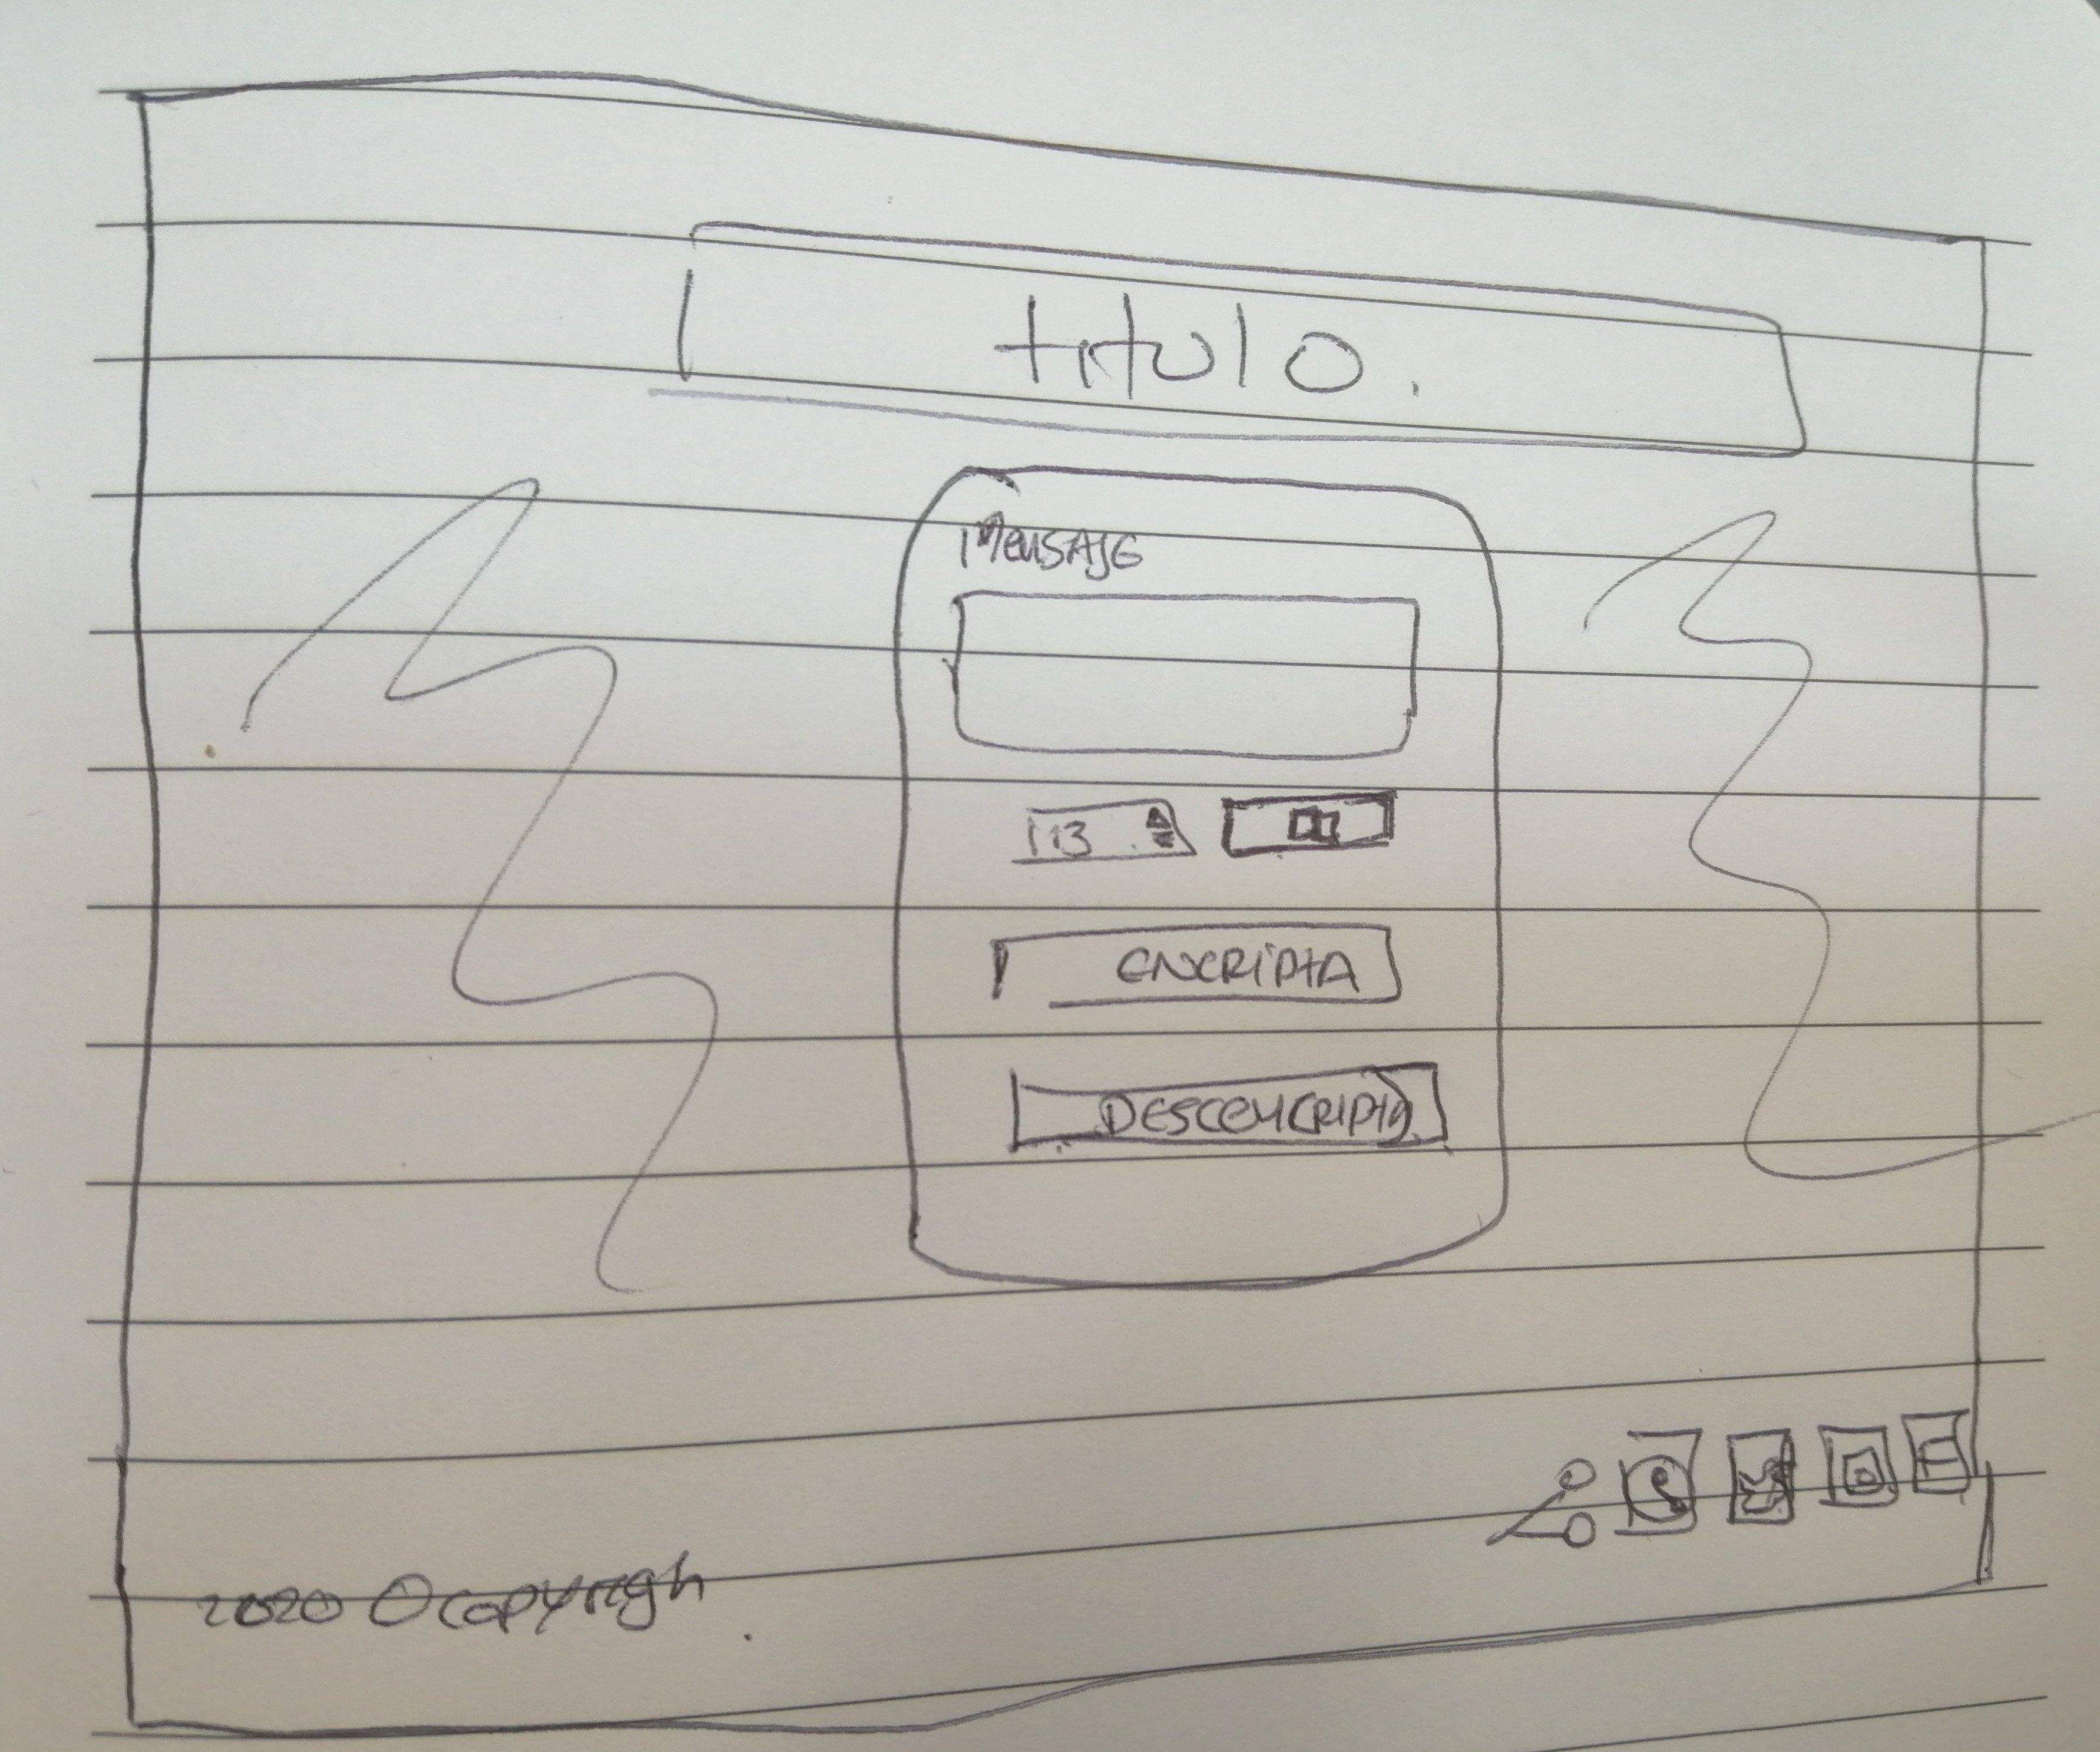 titulo.
MENSAJE
ENCRIPTA
DESCENCRIPTA
2020 © copyrigh